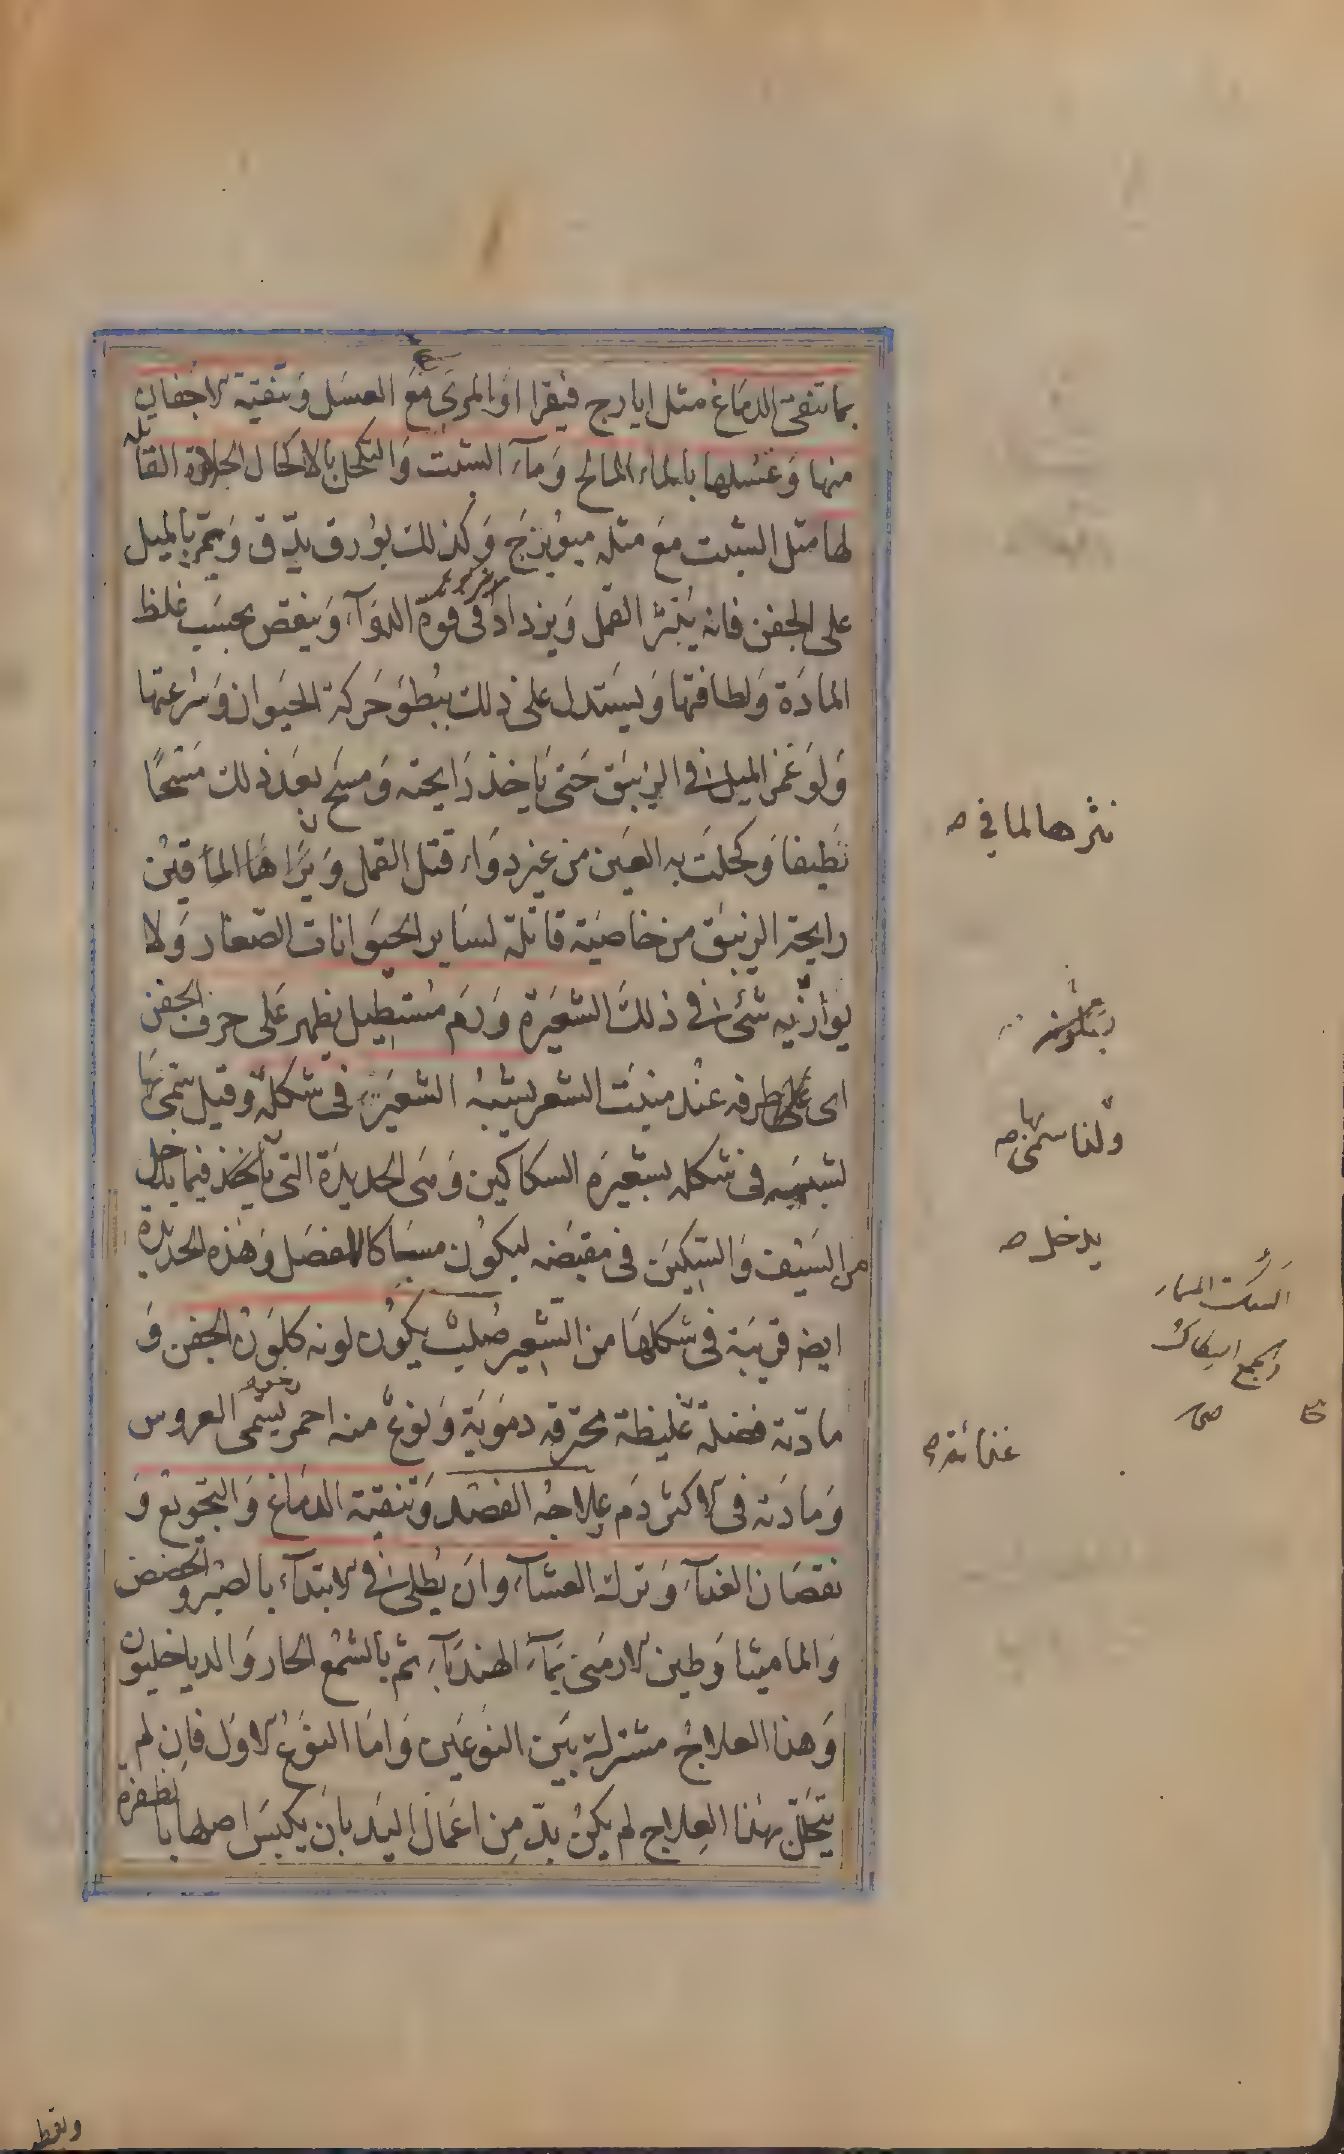 بما تنقى الدماغ مثل ايارج فيقرا او المرى مع العسل وتنقية الاجفان
منها وغسلها بالماء المالح وماء الشبت والتكحل بالاكحال الجلاءة القاتلة
لها مثل الشبت مع مثله ميويزج وكذلك بورق يدق ويمر بالميل
على الجفن فانه ينثر القمل ويزداد فى قوة الدوآء وينقص بحسب غلظ
المادة ولطافتها ويستدل على ذلك ببطؤ حركة الحيوان وسرعتها
ولو غمز الميل فى الزيبق حتى ياخذ رايحته ومسح بعد ذلك مسحًا
نظيفا وكحلت به العين من غير دواء قتل القمل
رايحة الزيبق من خاصية قاتلة لساير الحيوانات الصغار ولا
يوازيه شئ فى ذلك الشعيرة ورم مستطيل يظهر على حرف الجفن
اى على طرفه عند منبت الشعر يشبه الشعير فى شكله وقيل سمى بها
لشبهه فى شكله بشعيرة السكاكين وهى الحديدة التى تاخذ فيما يدخل
من السيف والسكين فى مقبضه ليكون مساكا للفصل وهذه الحديدة
ايض قريبة فى شكلها من الشعير صلب يكون لونه كلون الجفن و
مادته فضلة غليظة محترقه دموية ونوع منه احمر يسمى العروس
ومادته فى الاكثر دم علاجه الفصد وتنقية الدماغ والتجويع و
نقصان الغذآء وترك العشآء وان يطلى فى الابتدآء بالصبر والحضض
والماميثا وطين الارمنى بمآء الهندبآء ثم بالشمع الحار والدياخليون
وهذا العلاج مشترك بين النوعين واما النوع الاول فان لم
يتحلل بهذا العلاج لم يكن بد من اعمال اليد بان يكبس اصلها بالظفرة
نثرها لما فى ص
يدخل ص